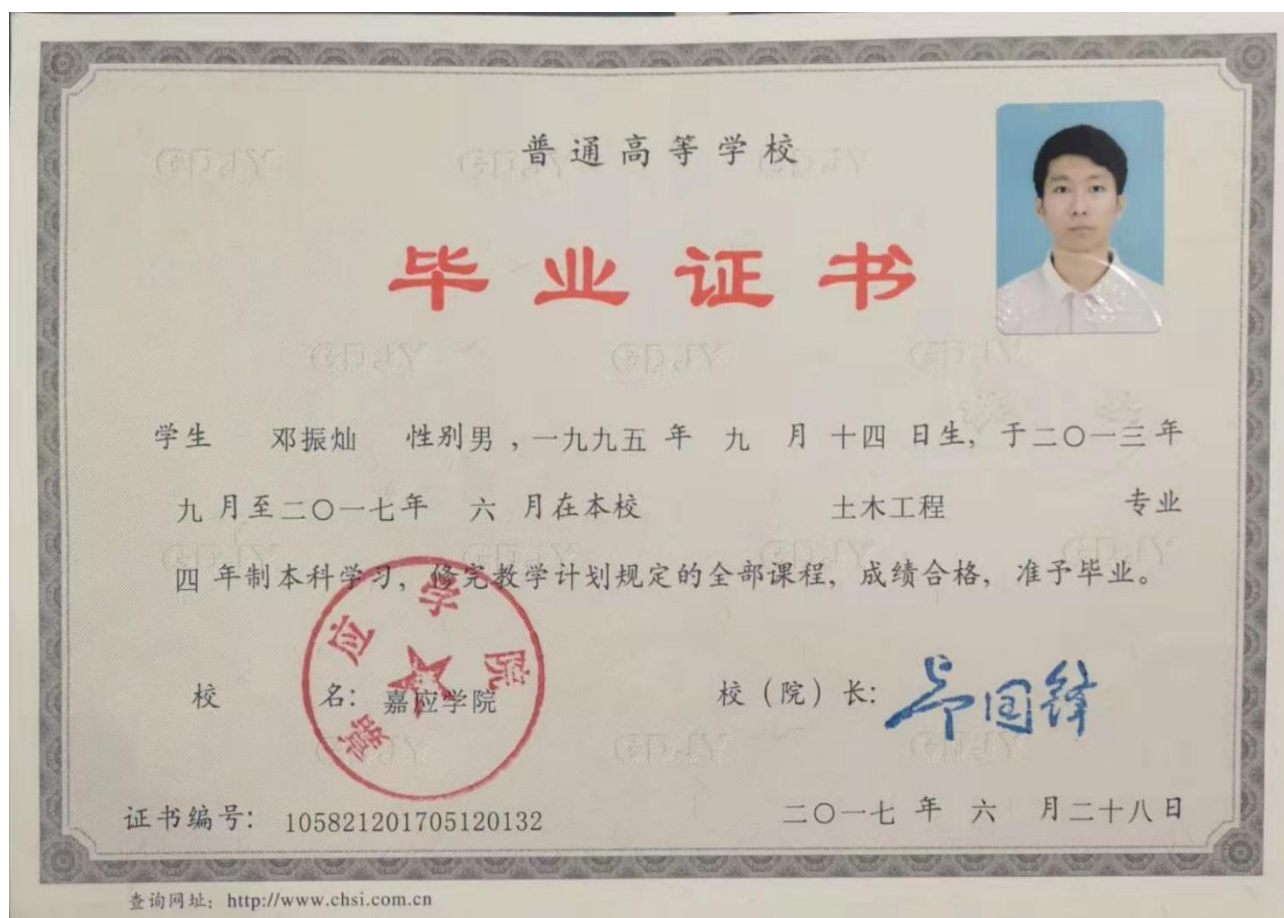 普通高等学校
毕业证书
学生 邓振灿 性别男，一九九五 年 九 月 十四 日生，于二〇一三年
九月至二〇一七年 六 月在本校 土木工程 专业
四 年制本科学习，修完教学计划规定的全部课程，成绩合格，准予毕业。
校 名：嘉应学院
嘉应学院
校（院）长：
证书编号：105821201705120132
二〇一七 年 六 月二十八日
查询网址：http://www.chsi.com.cn